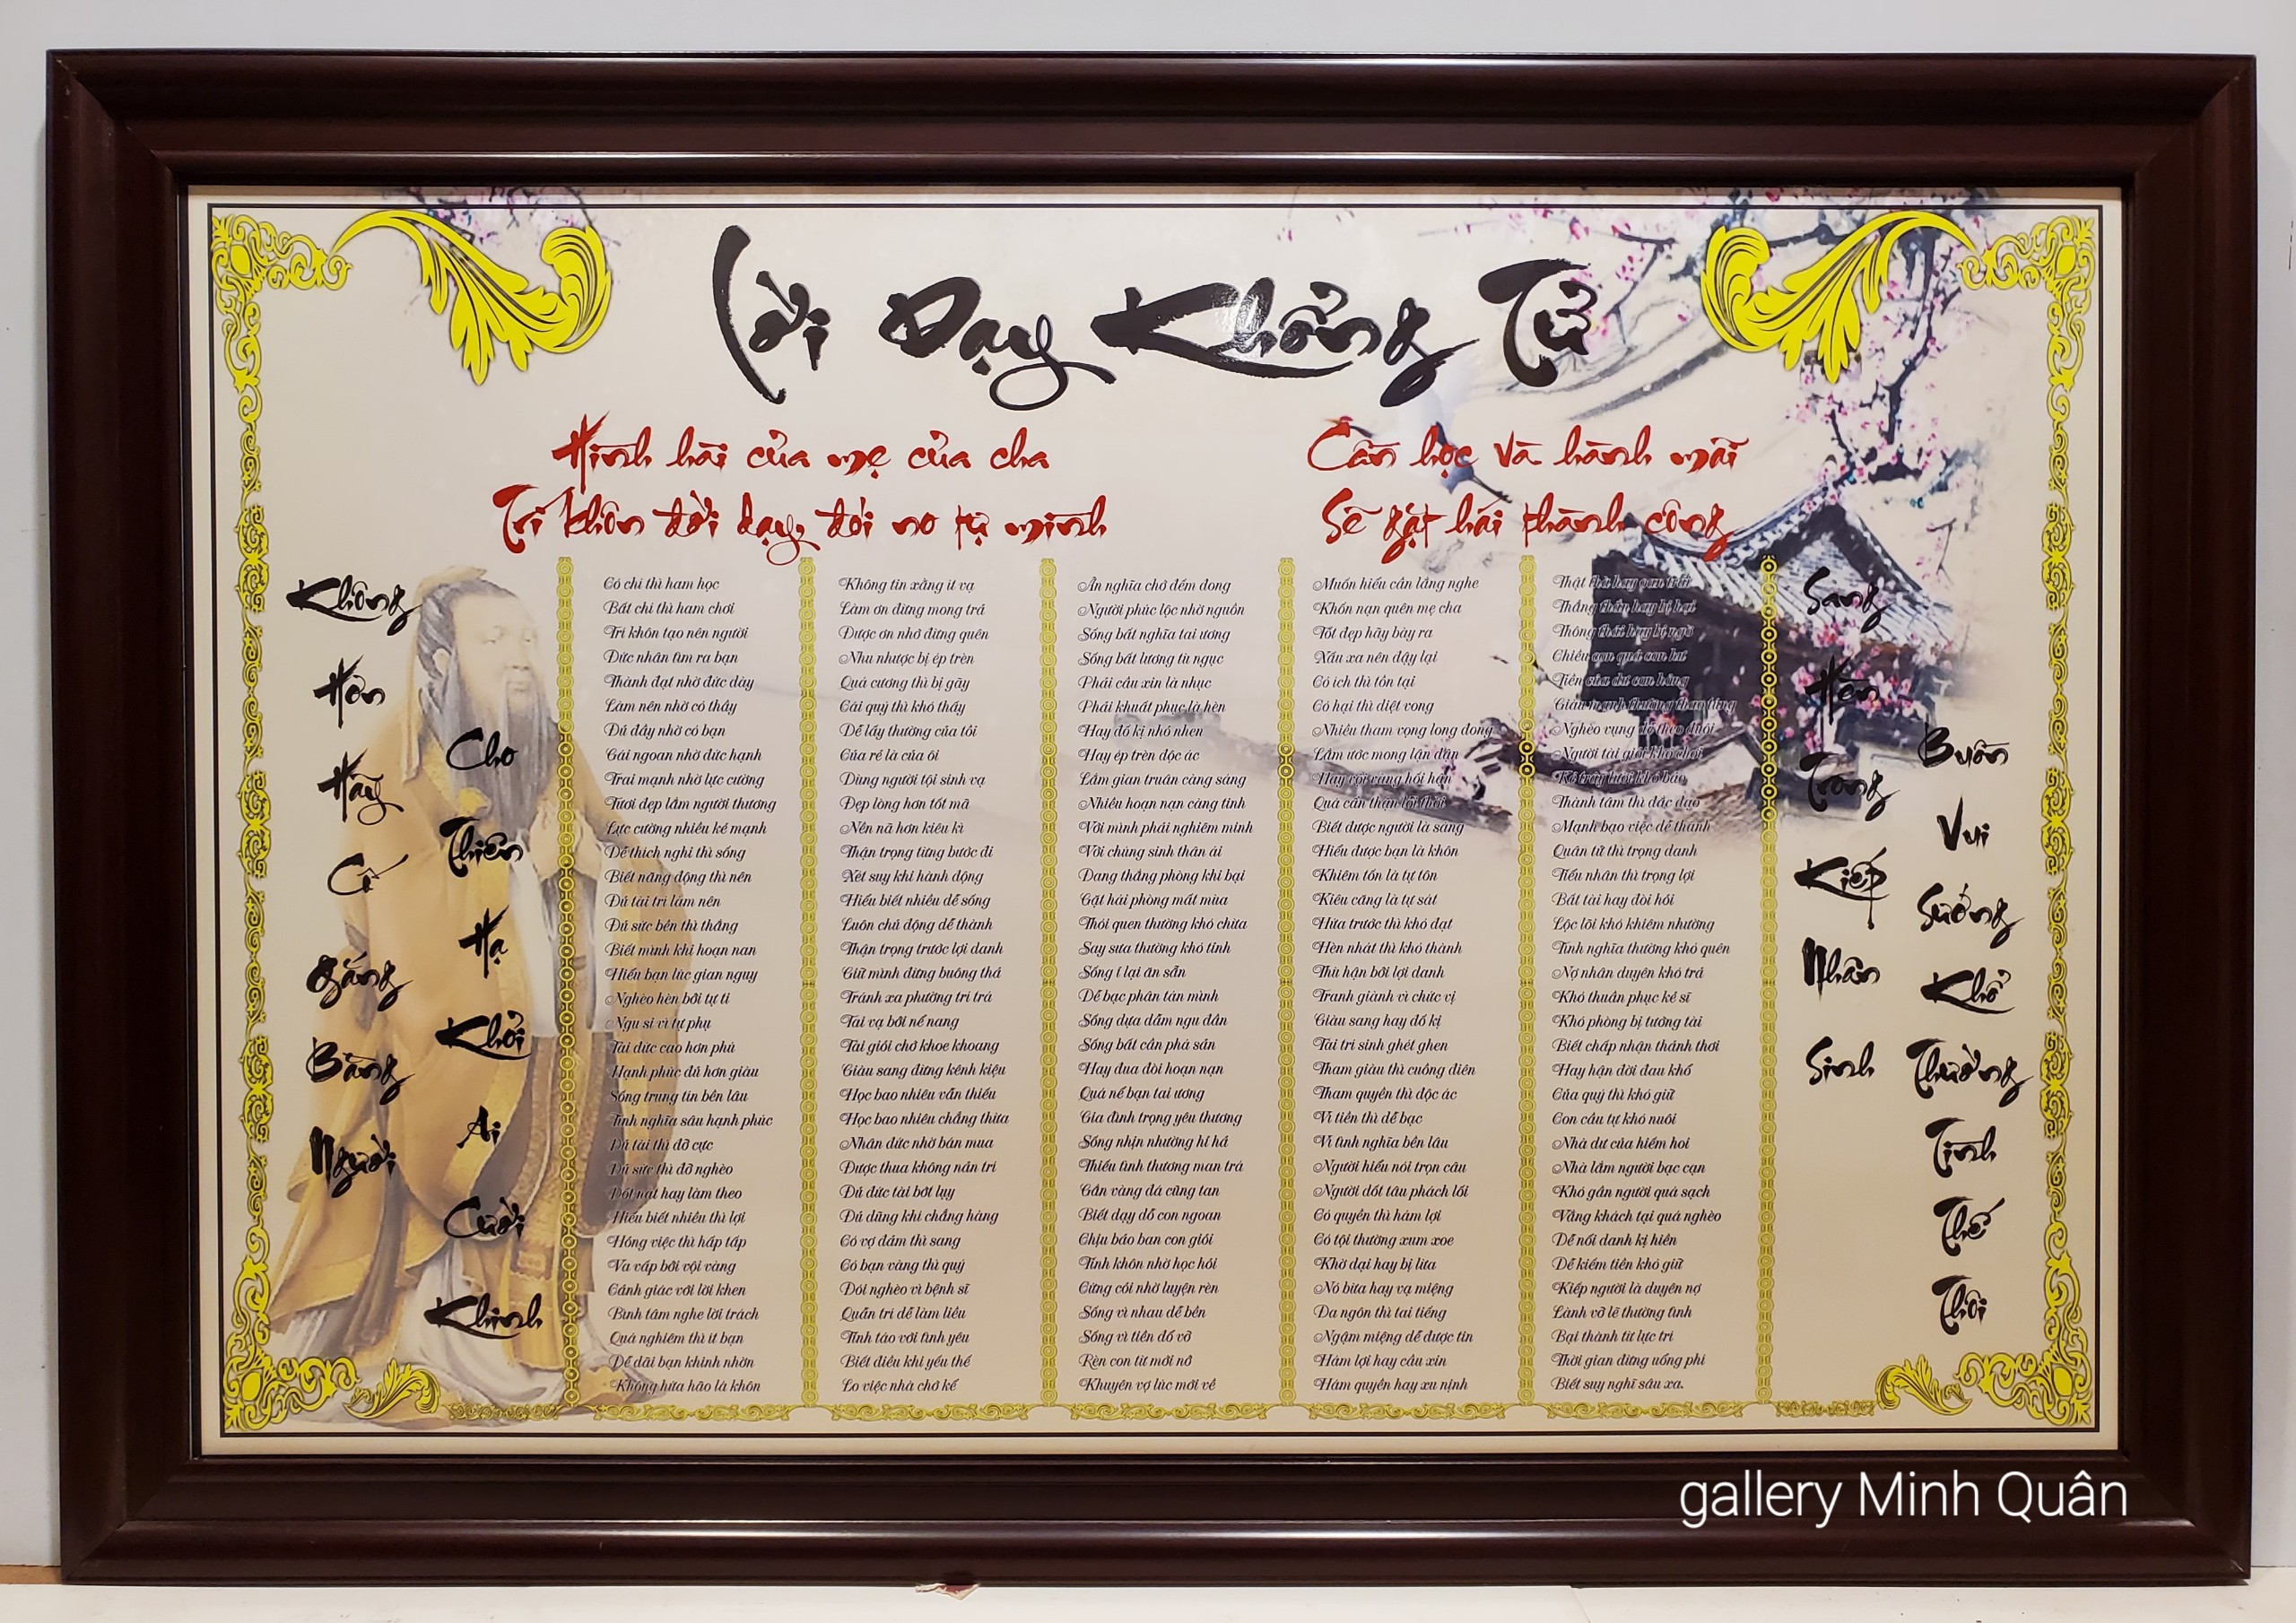 Lời Dạy Khổng Tử
Hình hài của mẹ của cha
Trí khôn đời dạy, đói no tự mình
Cần học và hành mãi
Sẽ gặt hái thành công
Không
Hơn
Hãy
Cố
gắng
Bằng
Người
Cho
Thiên
Hạ
Khỏi
Ai
Cười
Khinh
Có chí thì ham học
Bất chí thì ham chơi
Trí khôn tạo nên người
Đức nhân tìm ra bạn
Thành đạt nhờ đức dày
Làm nên nhờ có thầy
Đủ đầy nhờ có bạn
Gái ngoan nhờ đức hạnh
Trai mạnh nhờ lực cường
Tươi đẹp lắm người thương
Lực cường nhiều kẻ mạnh
Dễ thích nghi thì sống
Biết năng động thì nên
Đủ tài trí làm nên
Đủ sức bền thì thắng
Biết mình khi hoạn nạn
Hiểu bạn lúc gian nguy
Nghèo hèn bởi tự ti
Ngu si vì tự phụ
Tài đức cao hơn phú
Hạnh phúc đủ hơn giàu
Sống trung tín bền lâu
Tình nghĩa sâu hạnh phúc
Đủ tài thì đỡ cực
Đủ sức thì đỡ nghèo
Dốt nát hay làm theo
Hiểu biết nhiều thì lợi
Hỏng việc thì hấp tấp
Va vấp bởi vội vàng
Cảnh giác với lời khen
Bình tâm nghe lời trách
Quá nghiêm thì ít bạn
Dễ dãi bạn khinh nhờn
Không hứa hão là khôn
Không tin xằng ít vạ
Làm ơn đừng mong trả
Được ơn nhớ đừng quên
Nhu nhược bị ép trèn
Quá cương thì bị gãy
Cái quý thì khó thấy
Dễ lấy thường của tồi
Của rẻ là của ôi
Dùng người tội sinh vạ
Đẹp lòng hơn tốt mã
Nền nã hơn kiêu kì
Thận trọng từng bước đi
Xét suy khi hành động
Hiểu biết nhiều dễ sống
Luôn chủ động dễ thành
Thận trọng trước lợi danh
Giữ mình đừng buông thả
Tránh xa phường trí trá
Tai vạ bởi nể nang
Tài giỏi chớ khoe khoang
Giàu sang đừng kênh kiệu
Học bao nhiêu vẫn thiếu
Học bao nhiêu chẳng thừa
Nhân đức nhờ bán mua
Được thua không nản trí
Đủ đức tài bớt lụy
Đủ dũng khí chẳng hàng
Có vợ đảm thì sang
Có bạn vàng thì quý
Đói nghèo vì bệnh sĩ
Quẫn trí dễ làm liều
Tỉnh táo với tình yêu
Biết điều khi yếu thế
Lo việc nhà chớ kể
Ân nghĩa chớ đếm đong
Người phúc lộc nhờ nguồn
Sống bất nghĩa tai ương
Sống bất lương tù ngục
Phải cầu xin là nhục
Phải khuất phục là hèn
Hay đố kị nhỏ nhen
Hay ép trên độc ác
Lắm gian truân càng sáng
Nhiều hoạn nạn càng tinh
Với mình phải nghiêm minh
Với chúng sinh thân ái
Đang thắng phòng khi bại
Gặt hái phòng mất mùa
Thói quen thường khó chừa
Say sưa thường khó tỉnh
Sống ỉ lại ăn sẵn
Dễ bạc phận tán mình
Sống dựa dẫm ngu đần
Sống bất cần phá sản
Hay đua đòi hoạn nạn
Quá nể bạn tai ương
Gia đình trọng yêu thương
Sống nhịn nhường hỉ hả
Thiếu tình thương man trá
Gắn vàng đá cũng tan
Biết dạy dỗ con ngoan
Chịu bảo ban con giỏi
Tinh khôn nhờ học hỏi
Cứng cỏi nhờ luyện rèn
Sống vì nhau dễ bền
Sống vì tiền đổ vỡ
Rèn con từ mới nở
Khuyên vợ lúc mới về
Muốn hiểu cần lắng nghe
Khốn nạn quên mẹ cha
Tốt đẹp hãy bày ra
Xấu xa nên đậy lại
Có ích thì tồn tại
Có hại thì diệt vong
Nhiều tham vọng long đong
Lắm ước mong lận đận
Hay vội vàng hối hận
Quá cẩn thận lỡ thời
Biết được người là sáng
Hiểu được bạn là khôn
Khiêm tốn là tự tôn
Kiêu căng là tự sát
Hứa trước thì khó đạt
Hèn nhát thì khó thành
Thù hận bởi lợi danh
Tranh giành vì chức vị
Giàu sang hay đố kị
Tài trí sinh ghét ghen
Tham giàu thì cuồng điên
Tham quyền thì độc ác
Vì tiền thì dễ bạc
Vì tình nghĩa bền lâu
Người hiểu nói trọn câu
Người dốt tâu phách lối
Có quyền thì hám lợi
Có tội thường xum xoe
Khờ dại hay bị lừa
Nó bừa hay vạ miệng
Đa ngôn thì tai tiếng
Ngậm miệng dễ được tin
Hám lợi hay cầu xin
Hám quyền hay xu nịnh
Thật thà hay
Thẳng thắn hay bị hại
Thông thái hay bị ngờ
Chiều con quá con hư
Tiền của dư con hỏng
Giàu mạnh thường
Nghèo vụng
Người tài giỏi khó chơi
Kẻ trây lười khó bảo
Thành tâm thì đắc đạo
Mạnh bạo việc dễ thành
Quân tử thì trọng danh
Tiểu nhân thì trọng lợi
Bất tài hay đòi hỏi
Lọc lõi khó khiêm nhường
Tình nghĩa thường khó quên
Nợ nhân duyên khó trả
Khó thuần phục kẻ sĩ
Khó phòng bị tướng tài
Biết chấp nhận thảnh thơi
Hay hận đời đau khổ
Của quý thì khó giữ
Con cầu tự khó nuôi
Nhà dư của hiếm hoi
Nhà lắm người bạc cạn
Khó gần người quá sạch
Vắng khách tại quá nghèo
Dễ nổi danh kị hiền
Dễ kiếm tiền khó giữ
Kiếp người là duyên nợ
Lành vỡ lẽ thường tình
Bại thành từ lực trí
Thời gian đừng uổng phí
Biết suy nghĩ sâu xa.
Sang
Hèn
Trong
Kiếp
Nhân
Sinh
Buồn
Vui
Sướng
Khổ
Thường
Tình
Thế
Thôi
gallery Minh Quân